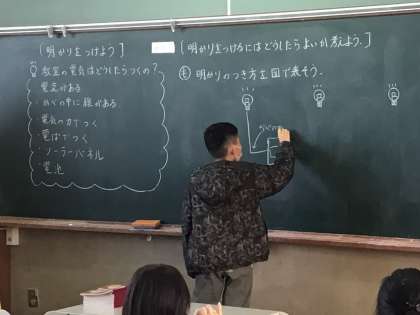 [明かりをつけよう]
教室の電気はどうしたらつくの?
・電気がある
・かべの中に線がある
・電気の力でつく
・電ぱでつく
・ソーラーパネル
・電池
[明かりをつけるにはどうしたらよいか考えよう.]
明かりのつき方を図で表そう。